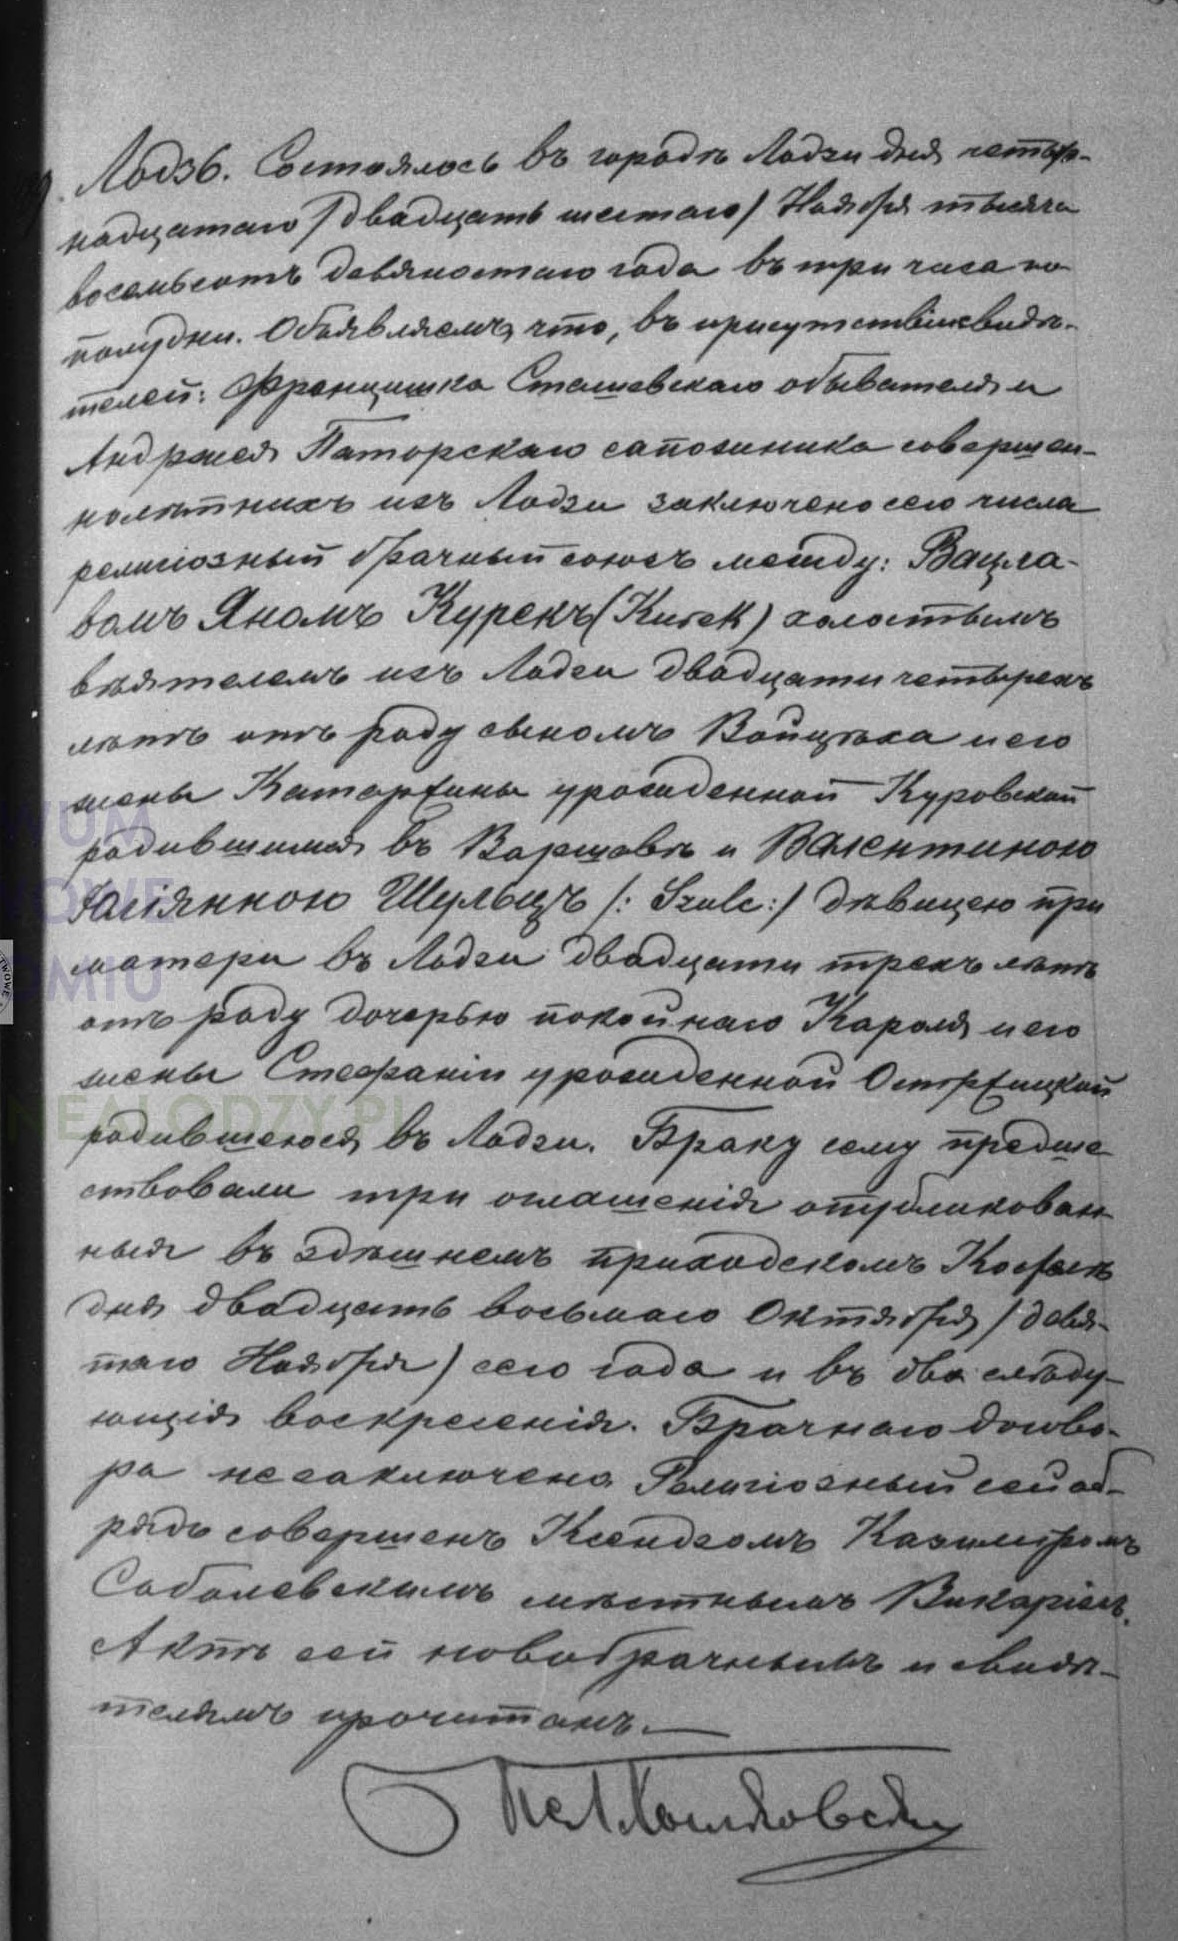 Лодзь. Состоялось въ городѣ Лодзи дня четыр-
надцатаго /двадцать шестаго/ Ноября тысяча
восемьсотъ девяностаго года въ три часа по
полудни. Объявляемъ, что, въ присутствіи свидѣ-
телей: Францишка Сташевскаго обывателя и
Андржея Паторскаго сапожника совершен-
нолѣтнихъ изъ Лодзи заключено сего числа
религіозный брачный союзъ между: Вацла-
вомъ Яномъ Курекъ (Kurek) холостымъ
ваятелемъ изъ Лодзи двадцати четырехъ
лѣтъ отъ роду сыномъ Войцѣха и его
жены Катаржины урожденной Куровской
родившимся въ Варшавѣ и Валентиною
Юліянною Шульцъ /: Szulc :/ дѣвицею при
матери въ Лодзи двадцати трехъ лѣтъ
отъ роду дочерью покойнаго Кароля и его
жены Стефаніи урожденной Остржицкой
родившеюся въ Лодзи. Браку сему предше-
ствовали три оглашенія опубликован-
ныя въ здѣшнемъ приходскомъ Костелѣ
дня двадцать восьмаго Октября / девя-
таго Ноября) сего года и въ два слѣду-
ющія воскресенія. Брачнаго догово-
ра незаключено. Религіозный сей об-
рядъ совершенъ Ксендзомъ Казимиромъ
Соболевскимъ мѣстнымъ Викаріемъ.
Актъ сей новобрачнымъ и свидѣ-
телямъ прочитанъ.
WUM
WOWE
OMIU
NEALODZY.PL